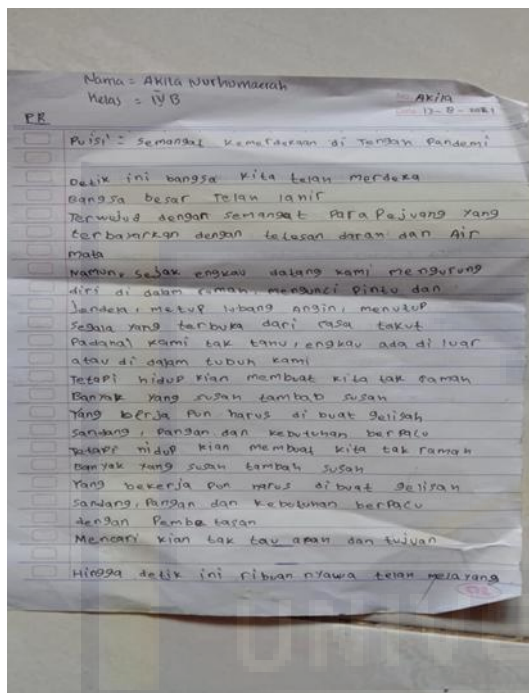 Nama = Akila Nurhumaerah
Kelas = IV B
Akila
13-8-2021
PR
Puisi = Semangat Kemerdekaan di Tengah Pandemi
Detik ini bangsa kita telah merdeka
Bangsa besar Telah lahir
Terwujud dengan semangat Para Pejuang yang
terbayarkan dengan tetesan darah dan Air
mata
Namun, sejak engkau datang kami mengurung
diri di dalam rumah, mengunci pintu dan
jendela, metup lubang angin, menutup
segala yang terbuka dari rasa takut
Padahal kami tak tahu, engkau ada di luar
atau di dalam tubuh kami
Tetapi hidup kian membuat kita tak ramah
Banyak yang susah tambah susah
Yang berja Pun harus di buat gelisah
Sandang, Pangan dan kebutuhan berpacu
Tetapi hidup kian membuat kita tak ramah
Banyak yang susah tambah susah
Yang bekerja Pun harus dibuat gelisah
Sandang, Pangan dan kebutuhan berpacu
dengan Pembatasan
Mencari kian tak tau arah dan tujuan
Hingga detik ini ribuan nyawa telah melayang
UNIVE